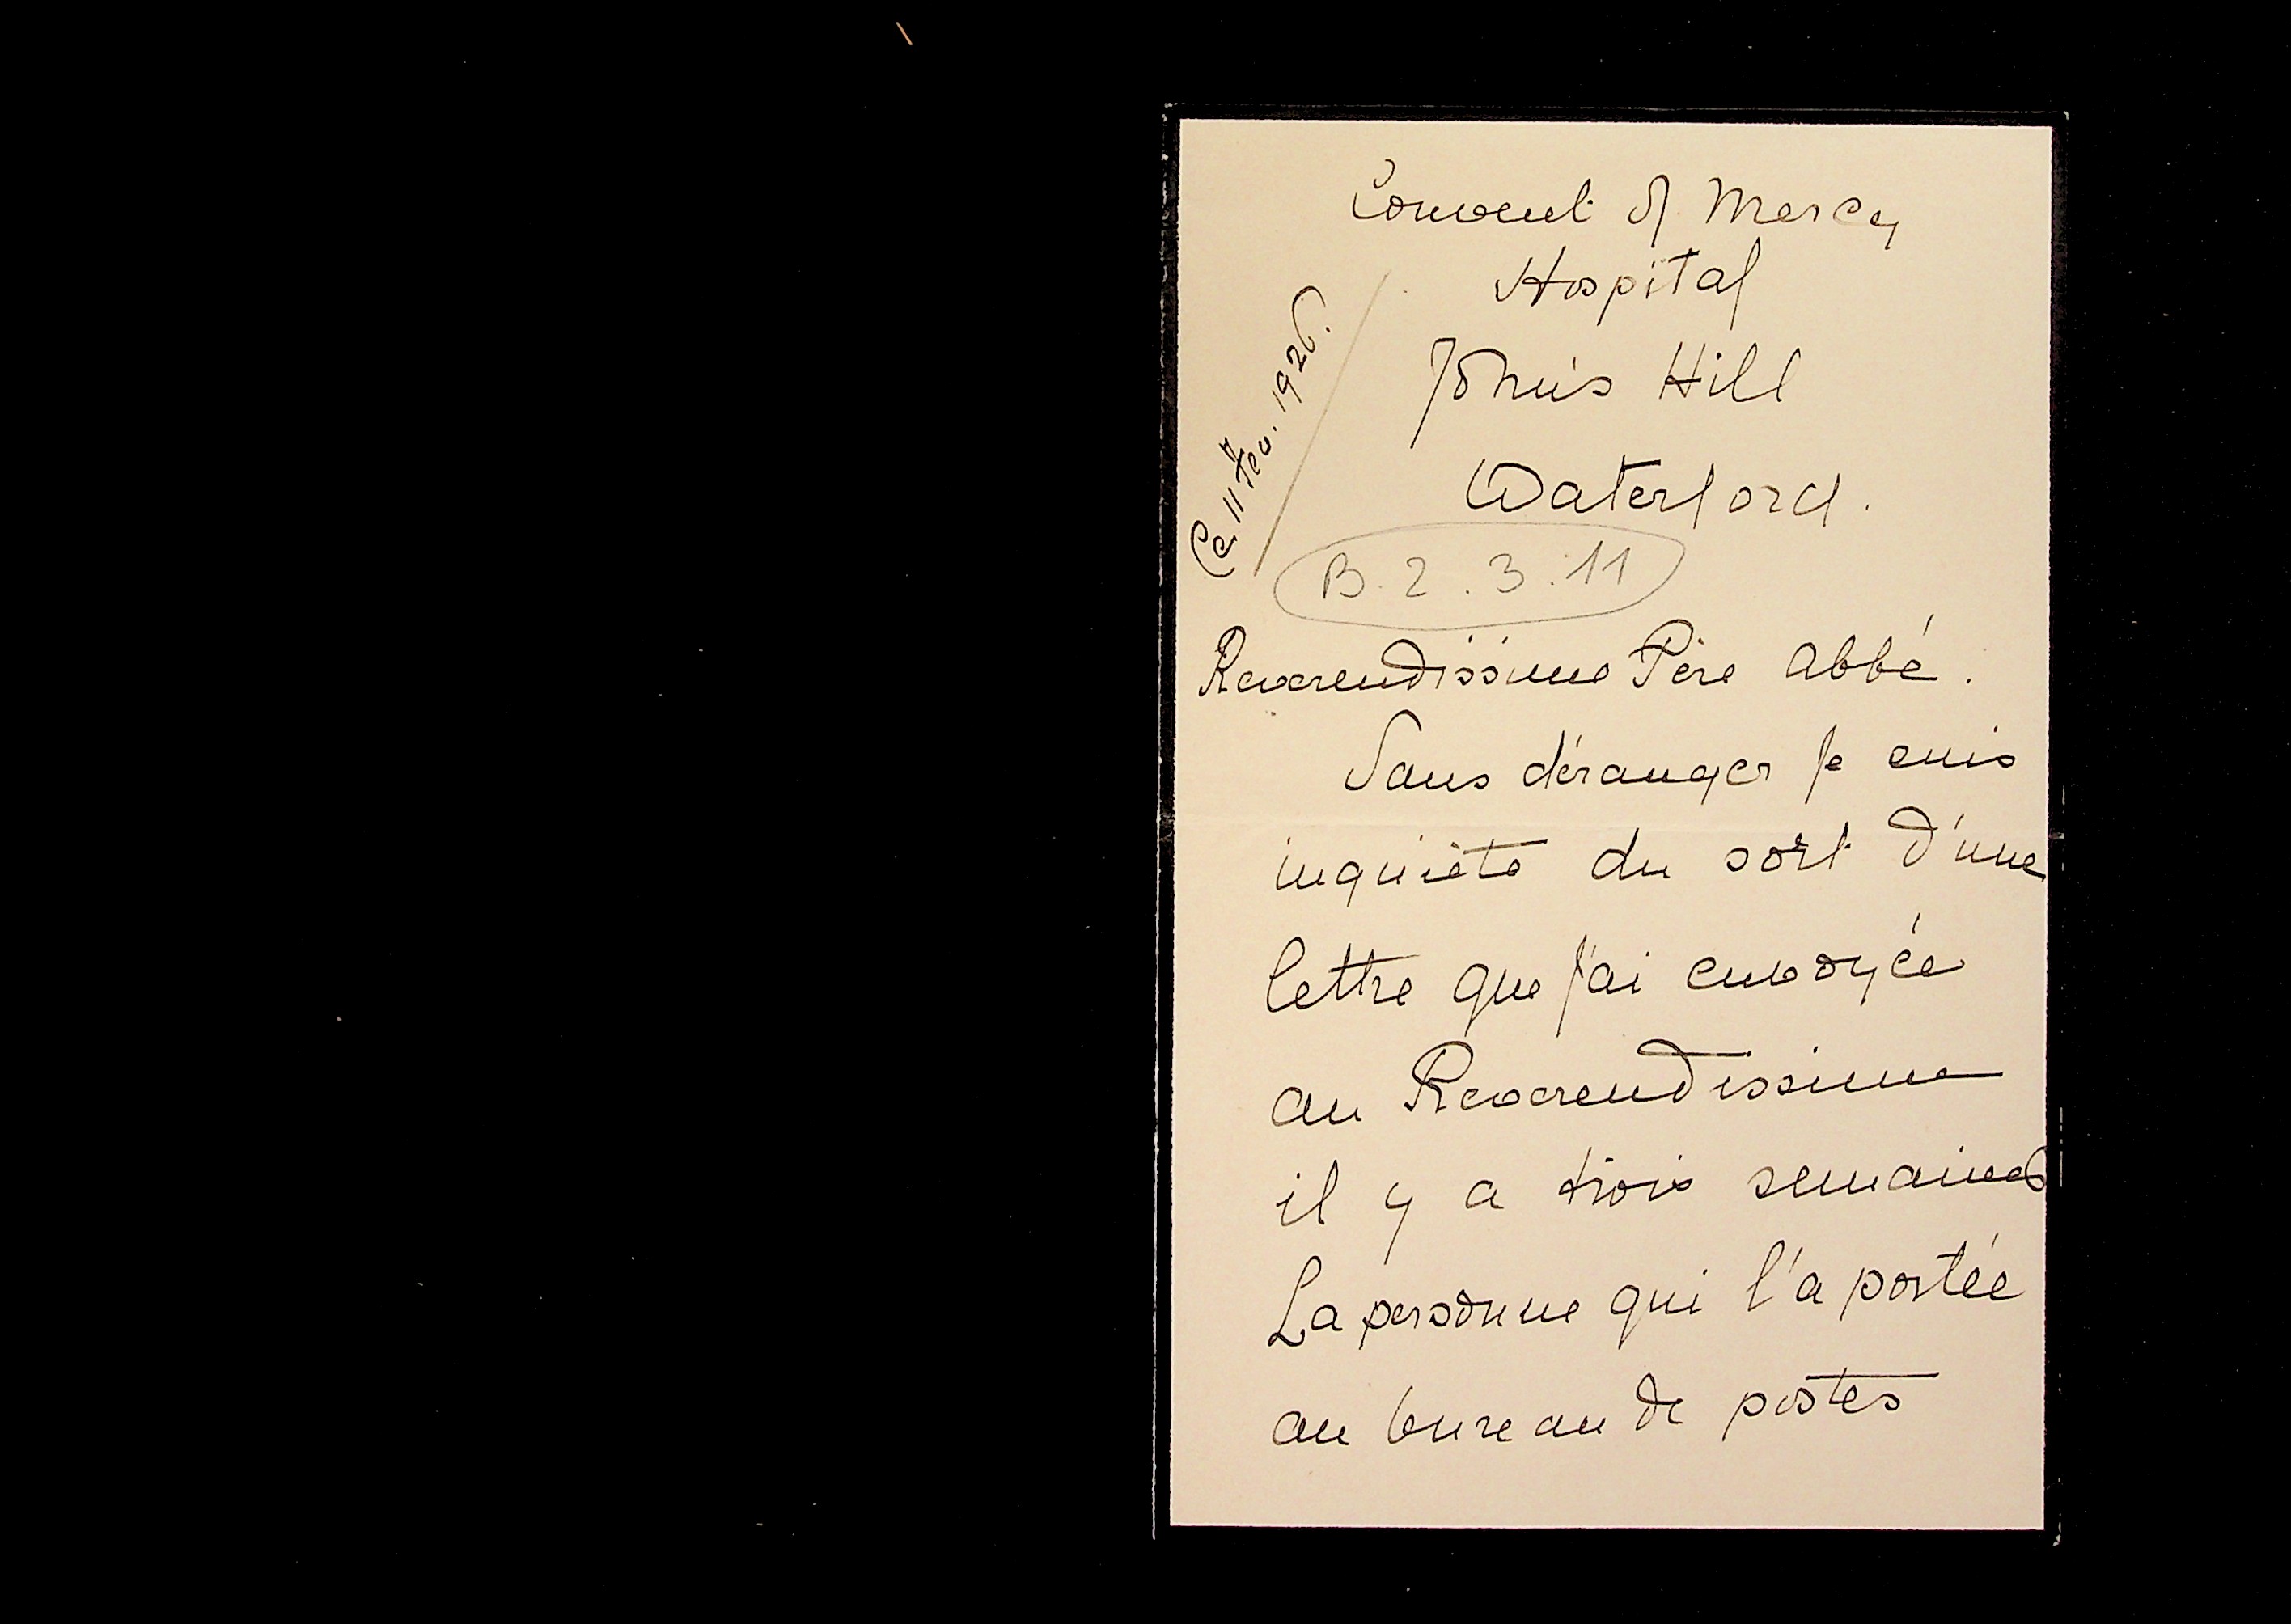 Convent of Mercy
Hospital
John's Hill
Waterford.
Ce 11 Fev. 1926.
B. 2. 3. 11
Reverendissime Père Abbé.
Sans déranger je suis
inquiète du sort d'une
lettre que j'ai envoyée
au Reverendissime
il y a trois semaines
La personne qui l'a portée
au bureau de postes